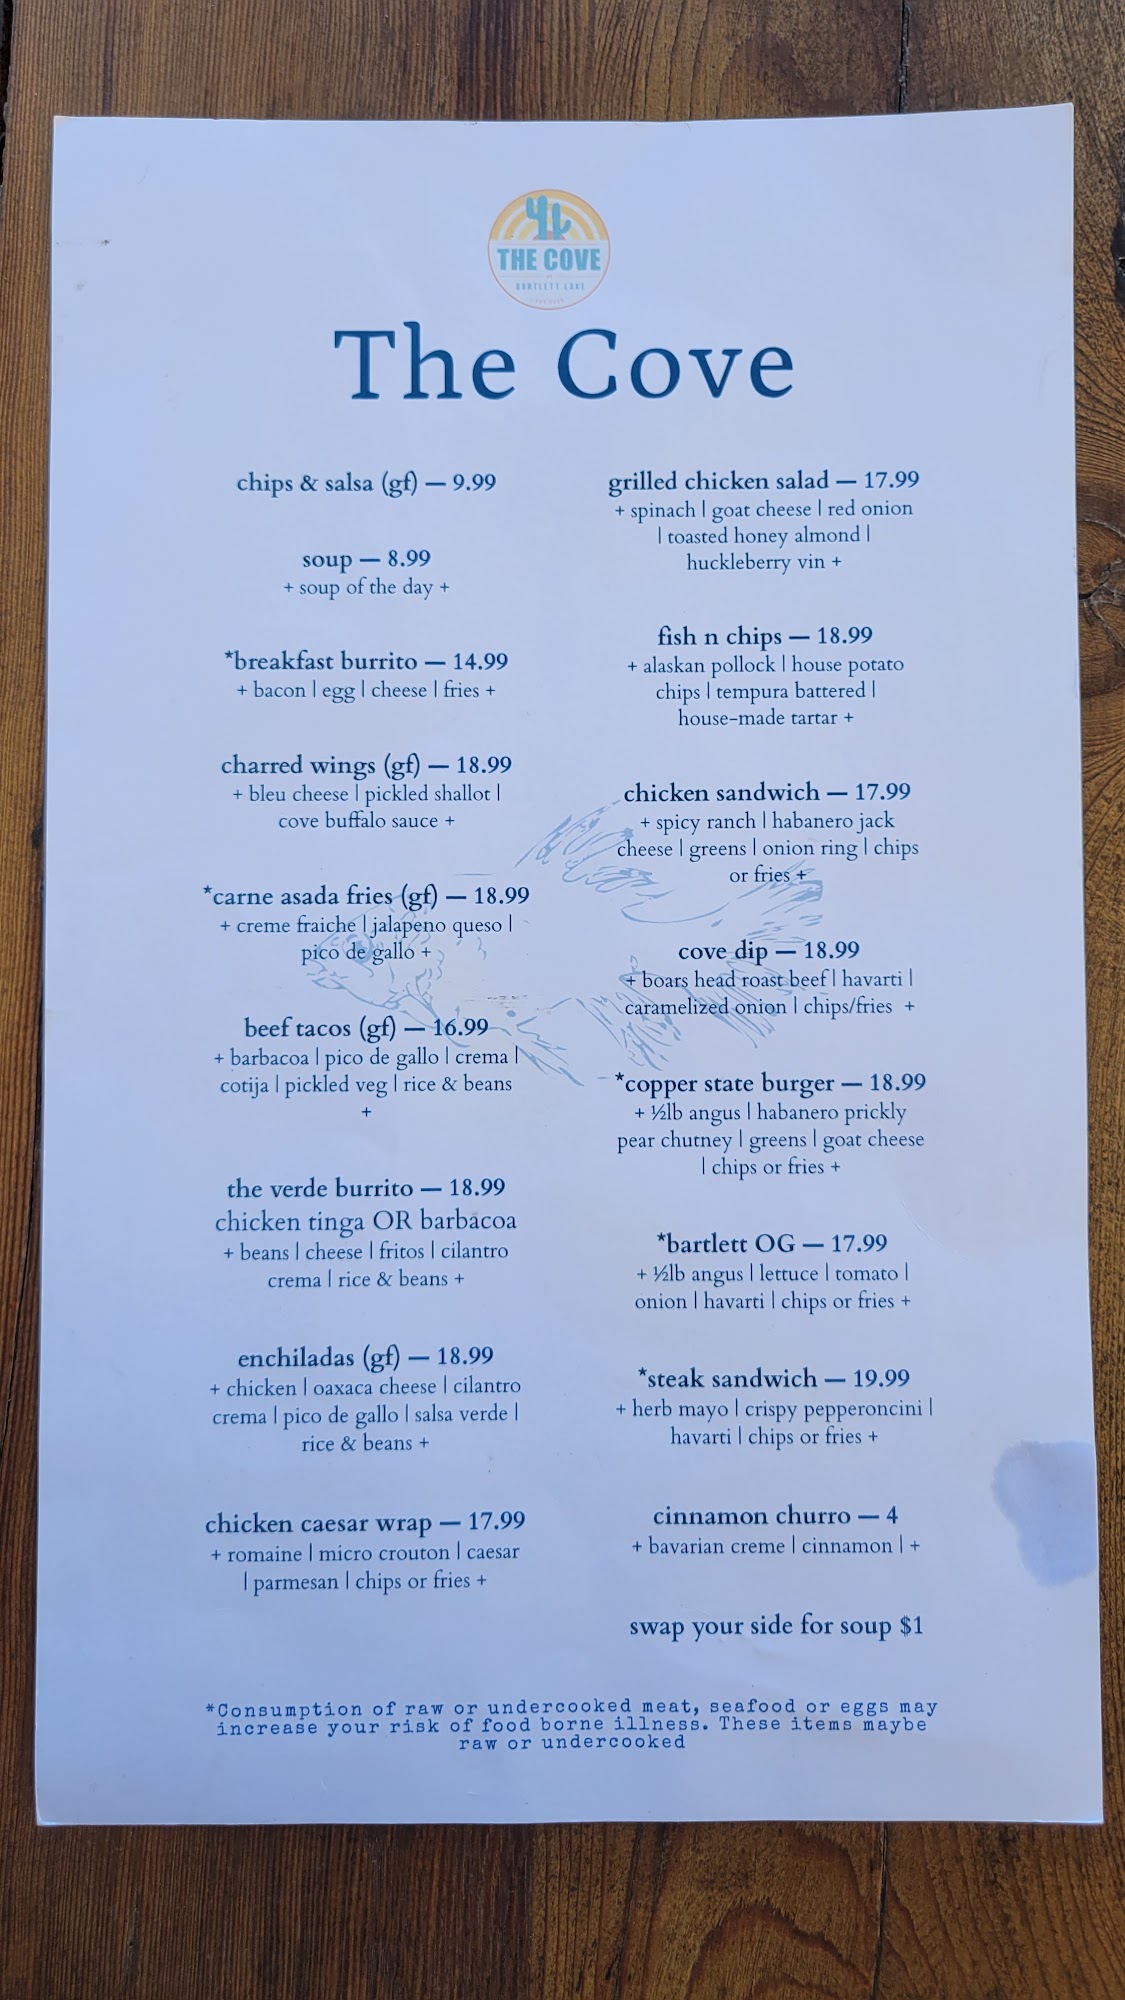 THE COVE
BARTLETT LAKE
The Cove
chips & salsa (gf) — 9.99
soup — 8.99
+ soup of the day +
*breakfast burrito — 14.99
+ bacon | egg | cheese | fries +
charred wings (gf) — 18.99
+ bleu cheese | pickled shallot |
cove buffalo sauce +
*carne asada fries (gf) — 18.99
+ creme fraiche | jalapeno queso |
pico de gallo +
beef tacos (gf) — 16.99
+ barbacoa | pico de gallo | crema |
cotija | pickled veg | rice & beans
+
the verde burrito — 18.99
chicken tinga OR barbacoa
+ beans | cheese | fritos | cilantro
crema | rice & beans +
enchiladas (gf) — 18.99
+ chicken | oaxaca cheese | cilantro
crema | pico de gallo | salsa verde |
rice & beans +
chicken caesar wrap — 17.99
+ romaine | micro crouton | caesar
| parmesan | chips or fries +
grilled chicken salad — 17.99
+ spinach | goat cheese | red onion
| toasted honey almond |
huckleberry vin +
fish n chips — 18.99
+ alaskan pollock | house potato
chips | tempura battered |
house-made tartar +
chicken sandwich — 17.99
+ spicy ranch | habanero jack
cheese | greens | onion ring | chips
or fries +
cove dip — 18.99
+ boars head roast beef | havarti |
caramelized onion | chips/fries +
*copper state burger — 18.99
+ ½lb angus | habanero prickly
pear chutney | greens | goat cheese
| chips or fries +
*bartlett OG — 17.99
+ ½lb angus | lettuce | tomato |
onion | havarti | chips or fries +
*steak sandwich — 19.99
+ herb mayo | crispy pepperoncini |
havarti | chips or fries +
cinnamon churro — 4
+ bavarian creme | cinnamon | +
swap your side for soup $1
*Consumption of raw or undercooked meat, seafood or eggs may
increase your risk of food borne illness. These items maybe
raw or undercooked